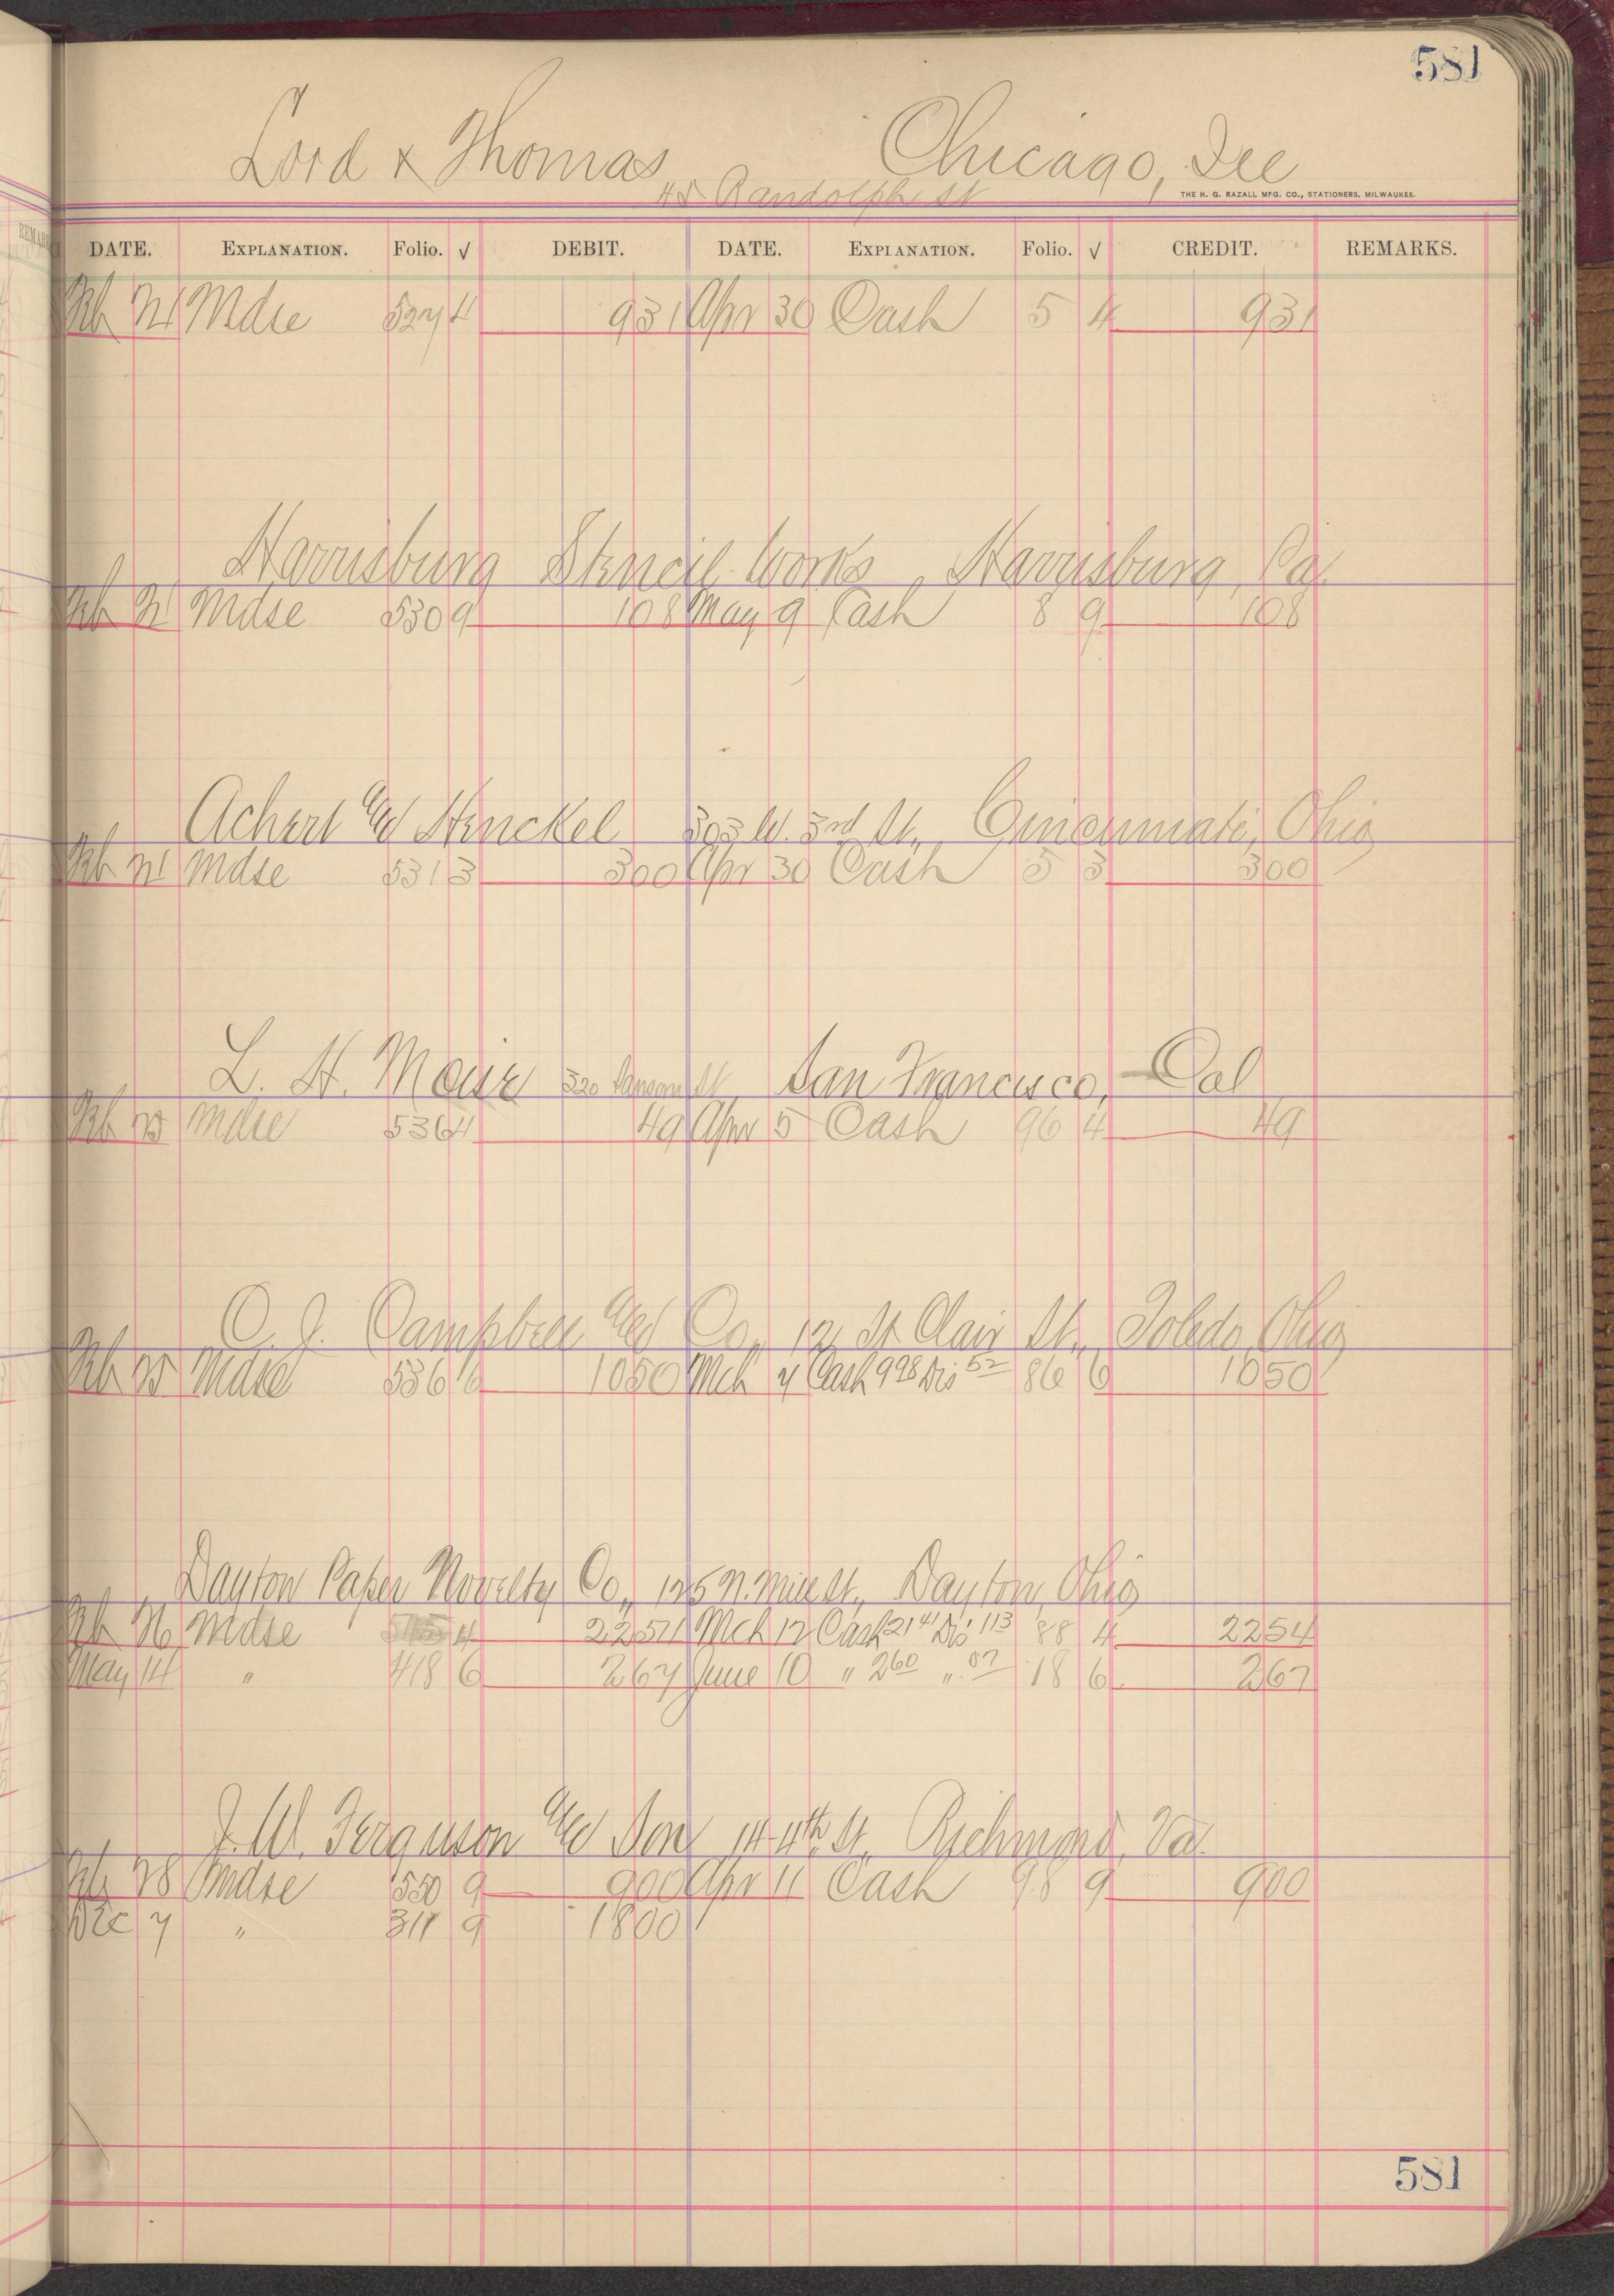 581
Lord & Thomas Chicago, Ill
45 Randolph St
THE H. G. RAZALL MFG. CO., STATIONERS, MILWAUKEE.
DATE. EXPLANATION. Folio. √ DEBIT. DATE. EXPLANATION. Folio. √ CREDIT. REMARKS.
Feb 21 Mdse 527 4 931 Apr 30 Cash 5 4 931
Harrisburg Stencil Works, Harrisburg, Pa.
Feb 21 Mdse 530 9 108 May 9 Cash 8 9 108
Achert & Henckel 303 W. 3rd St., Cincinnati, Ohio
Feb 21 Mdse 531 3 300 Apr 30 Cash 5 3 300
L. H. Moise 320 Sansom St San Francisco, Cal
Feb 25 Mdse 536 4 49 Apr 5 Cash 96 4 49
C. J. Campbell & Co., 12 St Clair St., Toledo, Ohio
Feb 25 Mdse 536 6 1050 Mch 7 Cash 998 Dis 52 86 6 1050
Dayton Paper Novelty Co., 125 N. Mill St., Dayton, Ohio
Feb 26 Mdse 4 2254 Mch 12 Cash 21 41 Dis 113 88 4 2254
May 14 " 418 6 267 June 10 " 2 60 " .07 18 6 267
J. W. Ferguson & Son 14-4th St., Richmond, Va.
Feb 28 Mdse 550 9 900 Apr 11 Cash 98 9 900
Dec 7 " 311 9 1800
581